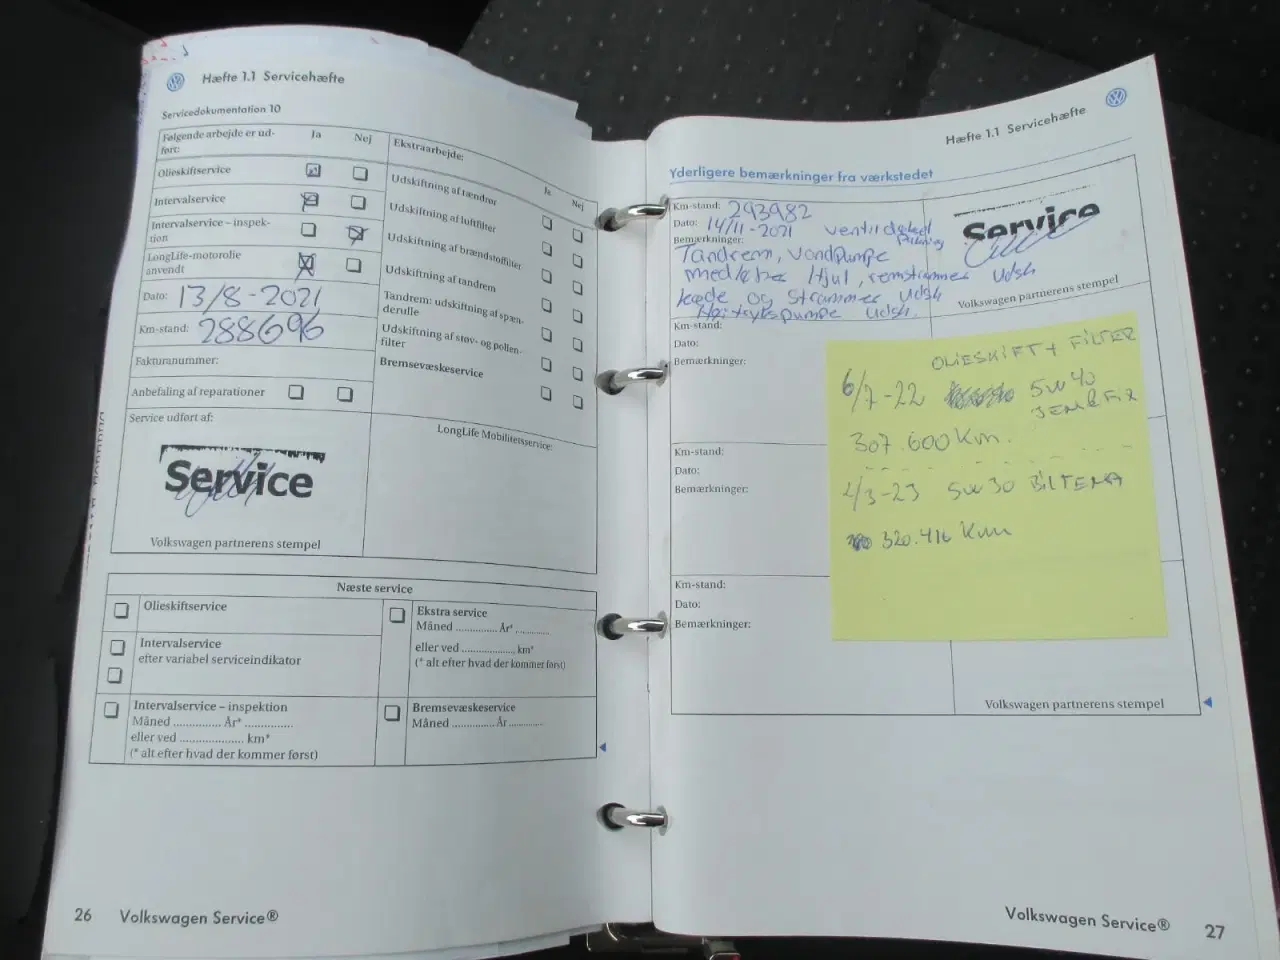 Hæfte 1.1 Servicehæfte
Servicedokumentation 10
Følgende arbejde er ud-
ført:
Ja
Nej
Olieskiftservice
Intervalservice
Intervalservice – inspek-
tion
LongLife-motorolie
anvendt
Dato: 13/8-2021
Km-stand: 288696
Fakturanummer:
Anbefaling af reparationer
Service udført af:
Service
Volkswagen partnerens stempel
Ekstraarbejde:
Ja
Nej
Udskiftning af tændrør
Udskiftning af luftfilter
Udskiftning af brændstoffilter
Udskiftning af tandrem
Tandrem: udskiftning af spæn-
derulle
Udskiftning af støv- og pollen-
filter
Bremsevæskeservice
LongLife Mobilitetsservice:
Næste service
Olieskiftservice
Intervalservice
efter variabel serviceindikator
Intervalservice – inspektion
Måned .............. År* ..............
eller ved .................... km*
(* alt efter hvad der kommer først)
Ekstra service
Måned ............. År* ...........
eller ved ................ km*
(* alt efter hvad der kommer først)
Bremsevæskeservice
Måned ............. År ...........
26 Volkswagen Service®
Hæfte 1.1 Servicehæfte
Yderligere bemærkninger fra værkstedet
Km-stand: 293982
Dato: 14/11-2021 ventildæksel
Bemærkninger: pakning
Tandrem, Vandpumpe
hjul, remstrammer Udsk
kæde og strammer udsk
Højtrykspumpe udsk.
Service
Volkswagen partnerens stempel
Km-stand:
Dato:
Bemærkninger:
OLIESKIFT + FILTER
6/7-22 5W40
307.600 Km.
4/3-23 5W30 BILTEMA
320.416 Km
Km-stand:
Dato:
Bemærkninger:
Km-stand:
Dato:
Bemærkninger:
Volkswagen partnerens stempel
Volkswagen Service® 27